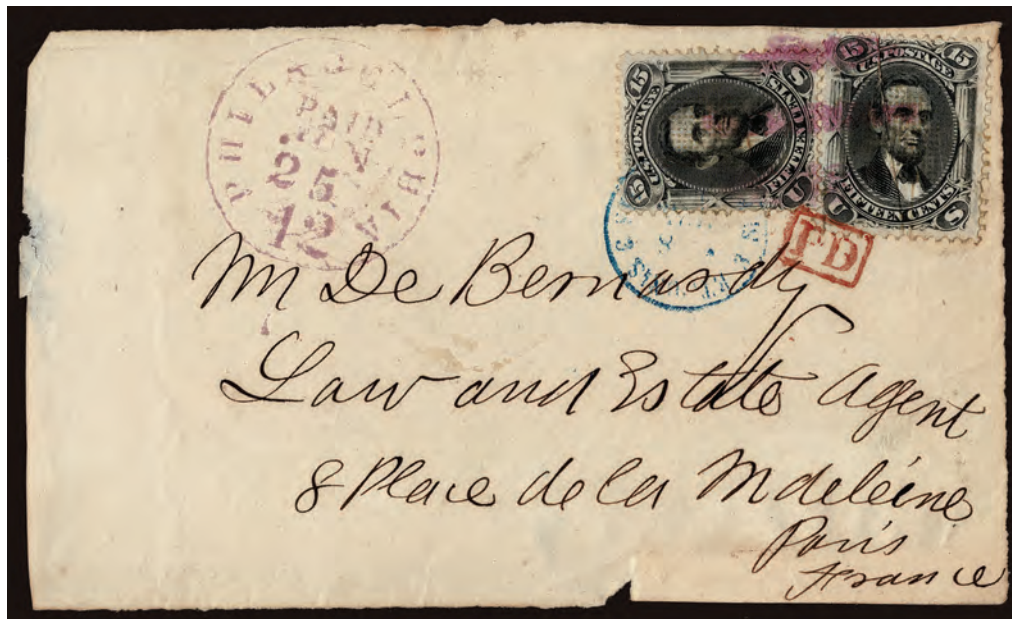 PHILADELPHIA
PAID
25
12
15 U.S. POSTAGE 15
FIFTEEN CENTS
U S
15 U.S. POSTAGE 15
FIFTEEN CENTS
U S
PD
M De Bernardy
Law and Estate Agent
8 Place de la Mdeleine
Paris
France